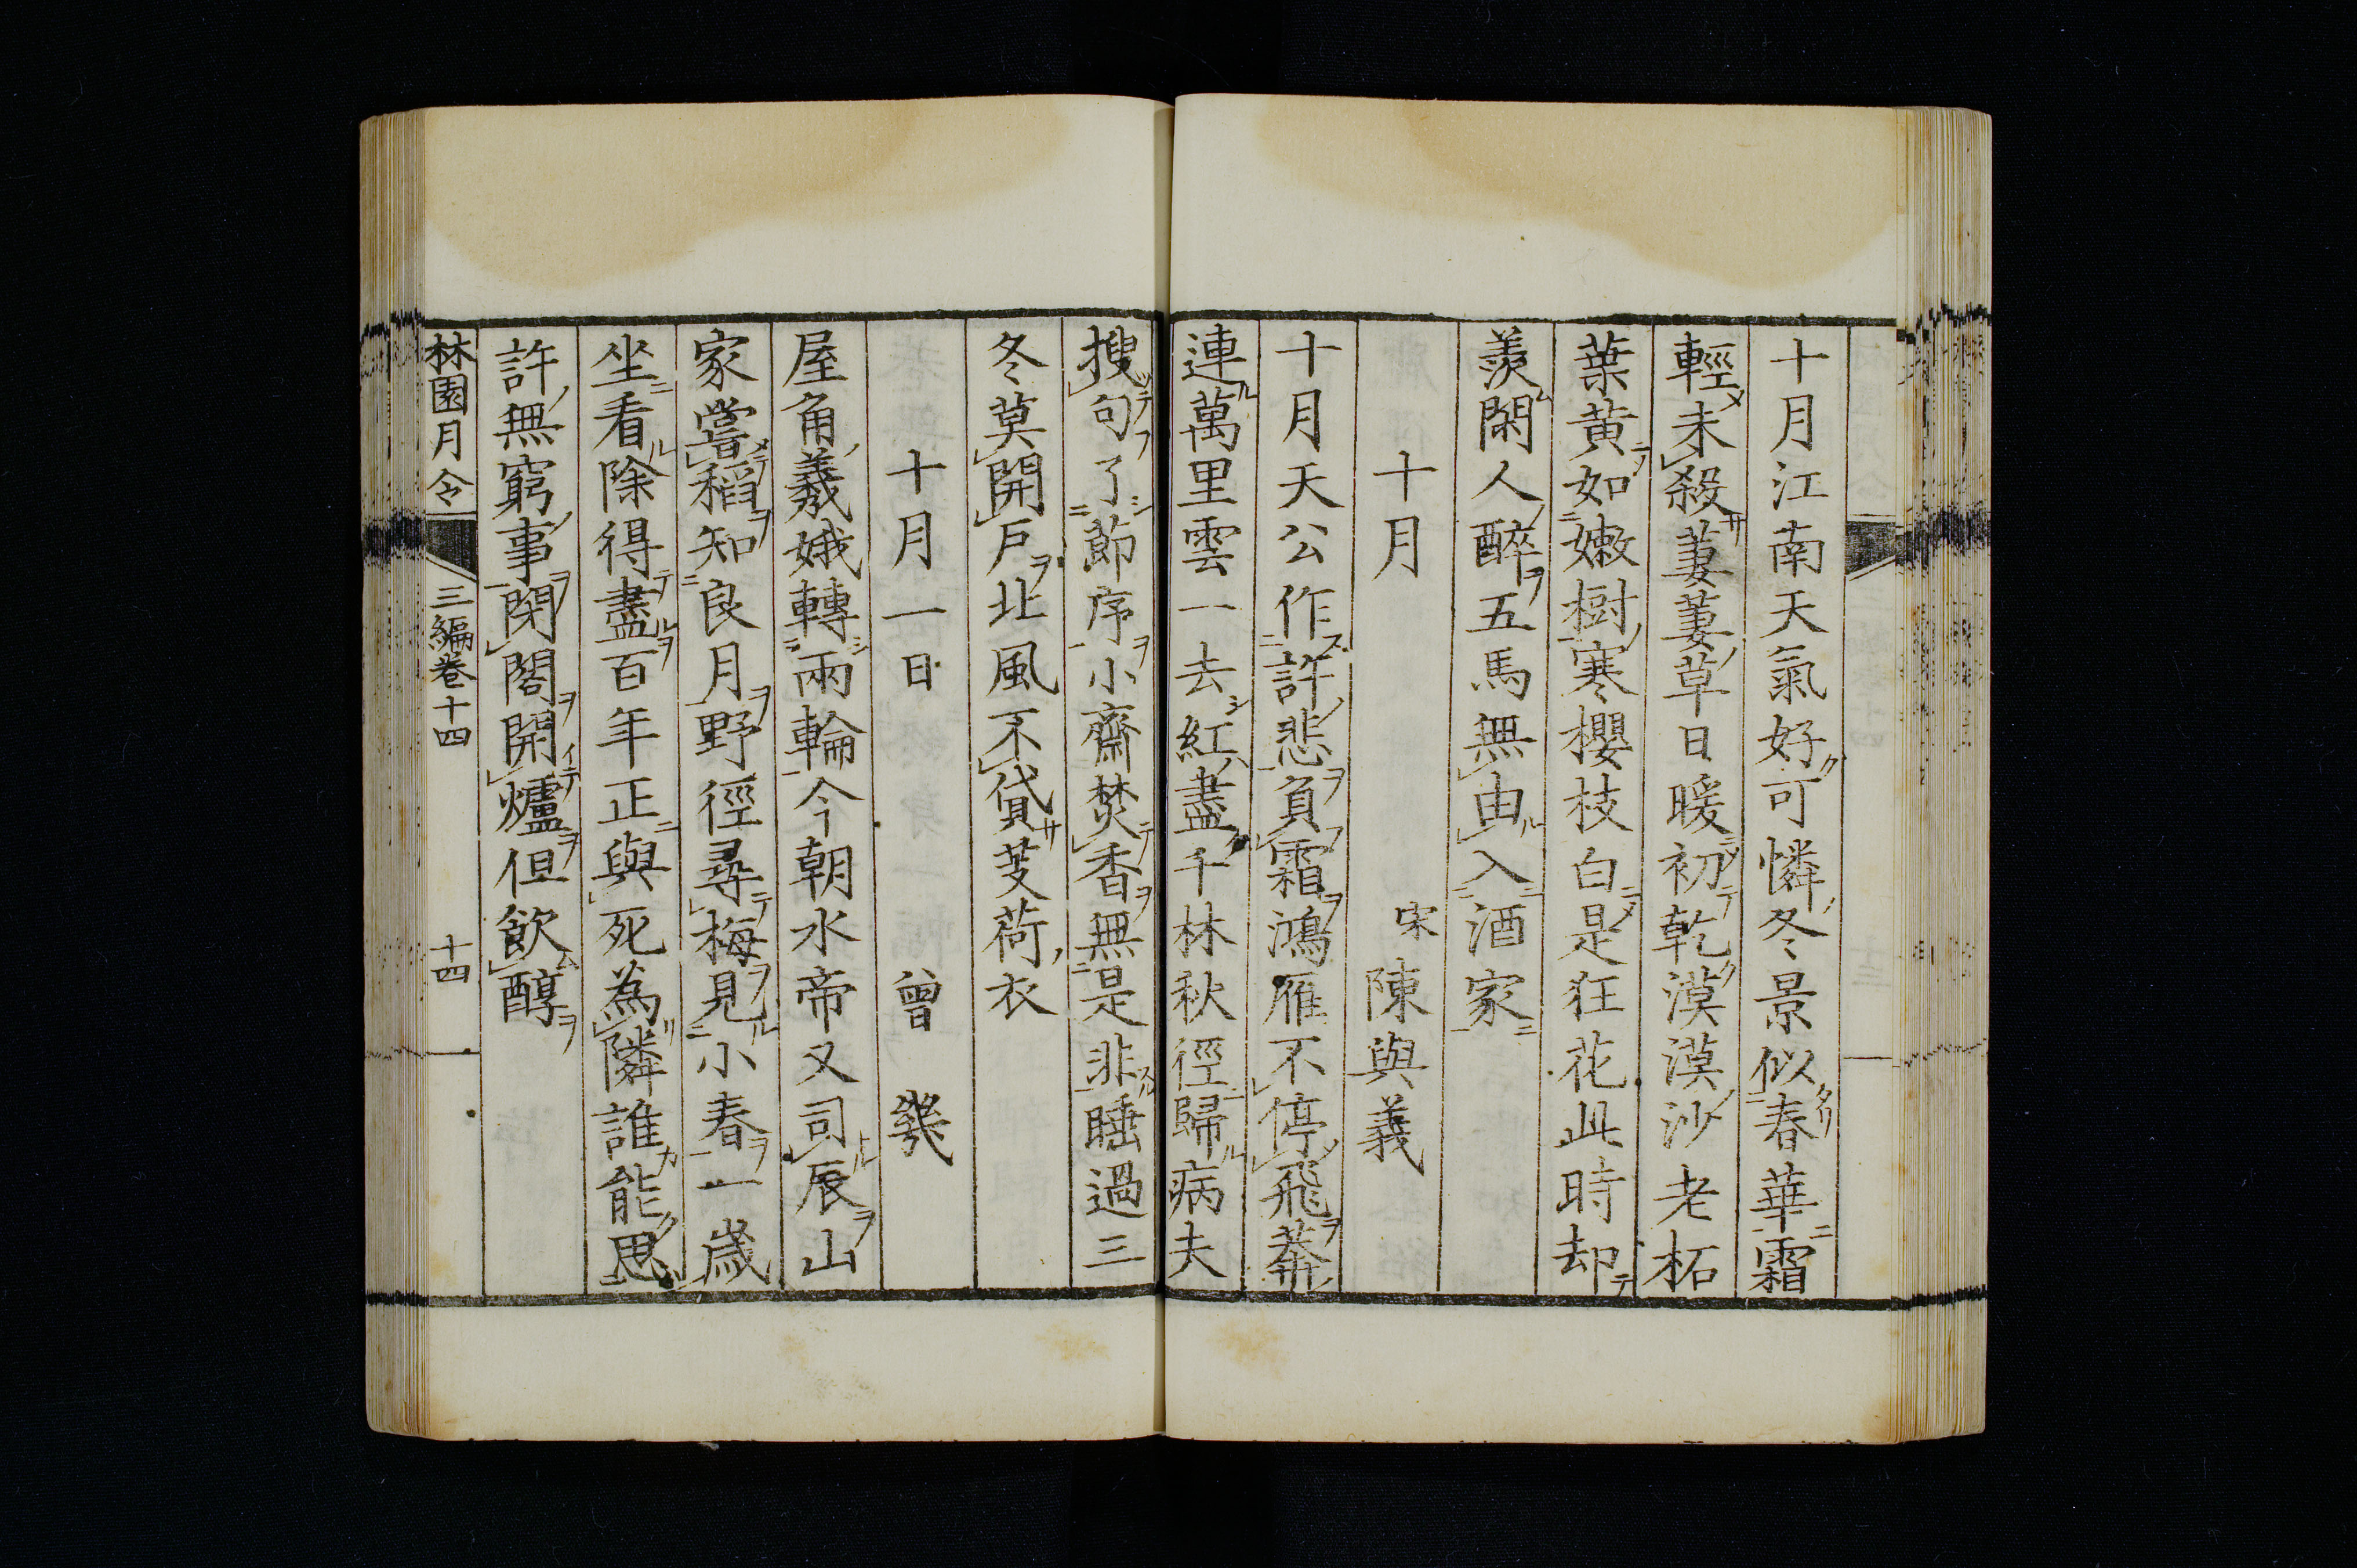 十月江南天氣好可憐冬景似春華霜
輕未殺萋萋草日暖初乾漠漠沙老柘
葉黄如嫩樹寒櫻枝白是狂花此時却
羨閑人醉五馬無由入酒家
十月
宋 陳與義
十月天公作許悲負霜鴻雁不停飛莽
連萬里雲一去紅盡千林秋徑歸病夫
搜句了節序小齋焚香無是非睡過三
冬莫開戸北風不貸芰荷衣
十月一日
曾幾
屋角羲娥轉兩輪今朝水帝又司辰山
家嘗稻知良月野徑尋梅見小春一歲
坐看除得盡百年正與死為隣誰能思
許無窮事閉閤開爐但飲醇
林園月令
三編卷十四
十四